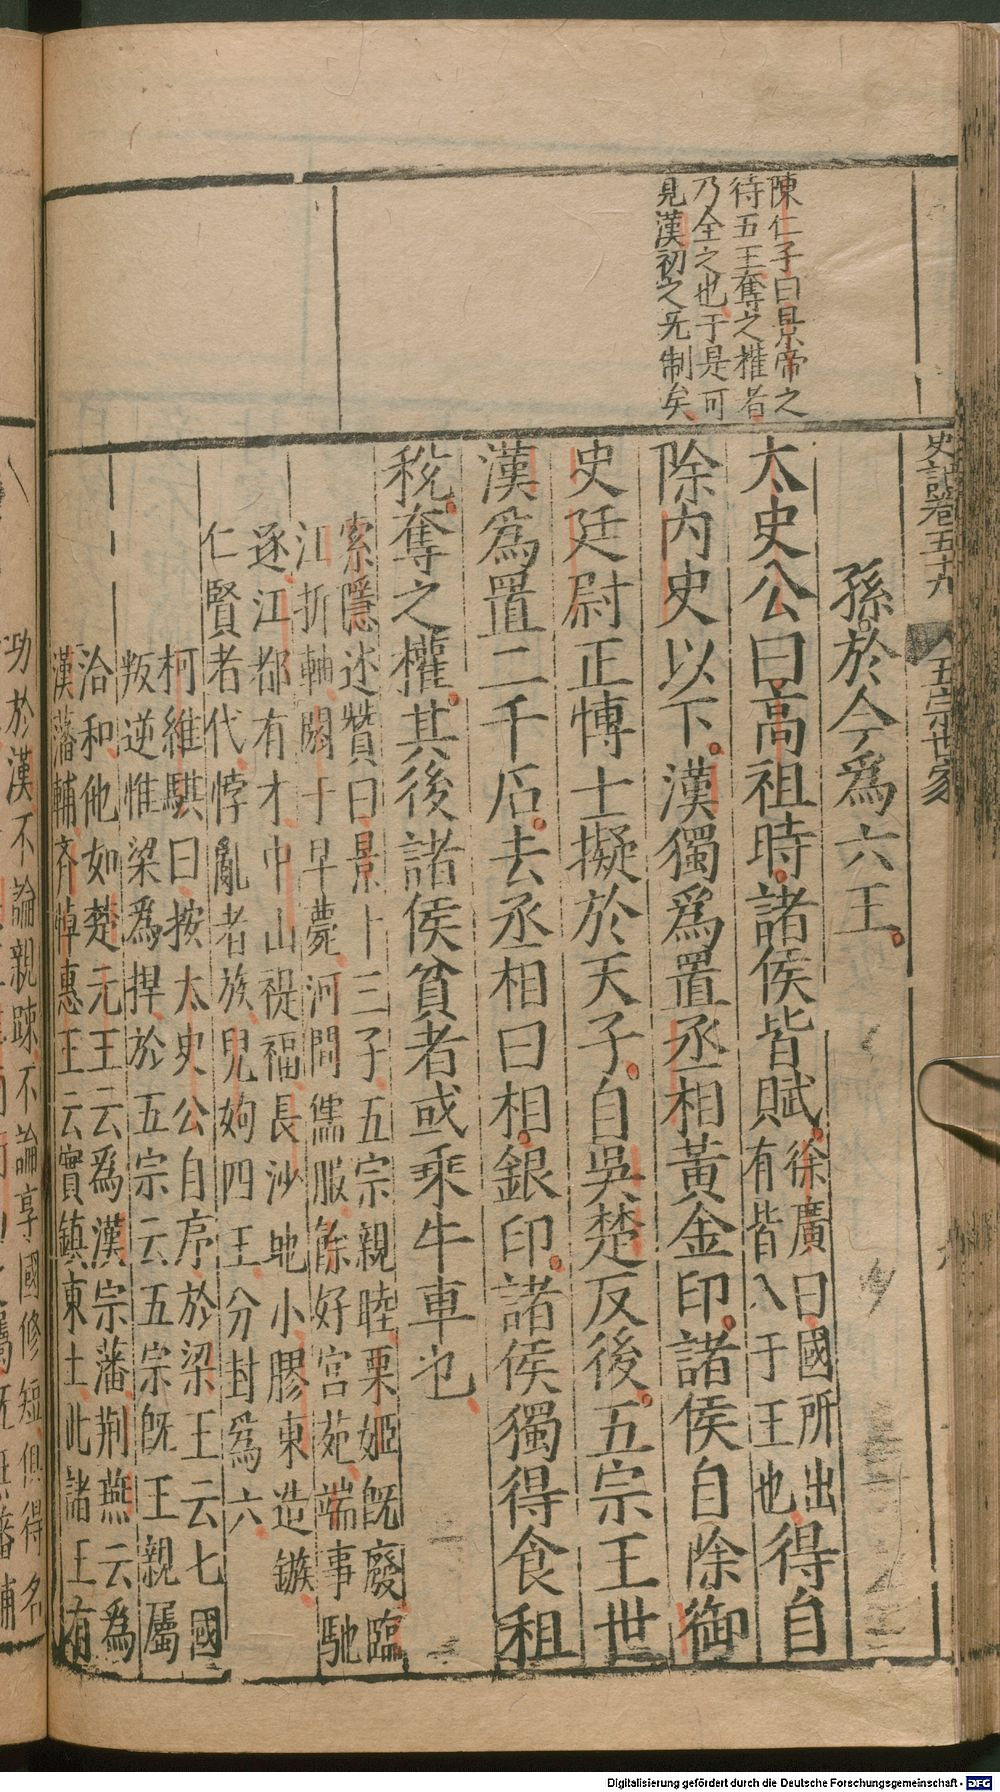 史記卷五十九
五宗世家
陳仁子曰景帝之
待五王奪之權者
乃全之也于是可
見漢初之旡制矣
孫於今爲六王
太史公曰高祖時諸侯皆賦徐廣曰國所出有皆入于王也得自
除內史以下漢獨爲置丞相黃金印諸侯自除御
史廷尉正博士擬於天子自吳楚反後五宗王世
漢爲置二千石去丞相曰相銀印諸侯獨得食租
稅奪之權其後諸侯貧者或乘牛車也
索隱述贊曰景十三子五宗親睦栗姬旣廢臨
江折軸閼于早薨河間儒服餘好宮苑端事馳
逐江都有才中山禔福長沙地小膠東造鏃
仁賢者代悖亂者族兒姁四王分封爲六
柯維騏曰按太史公自序於梁王云七國
叛逆惟梁爲捍於五宗云五宗旣王親屬
洽和他如楚元王云爲漢宗藩荆燕云爲
漢藩輔齊悼惠王云實鎮東土此諸王有
功於漢不論親踈不論享國修短俱得名
Digitalisierung gefördert durch die Deutsche Forschungsgemeinschaft - DFG